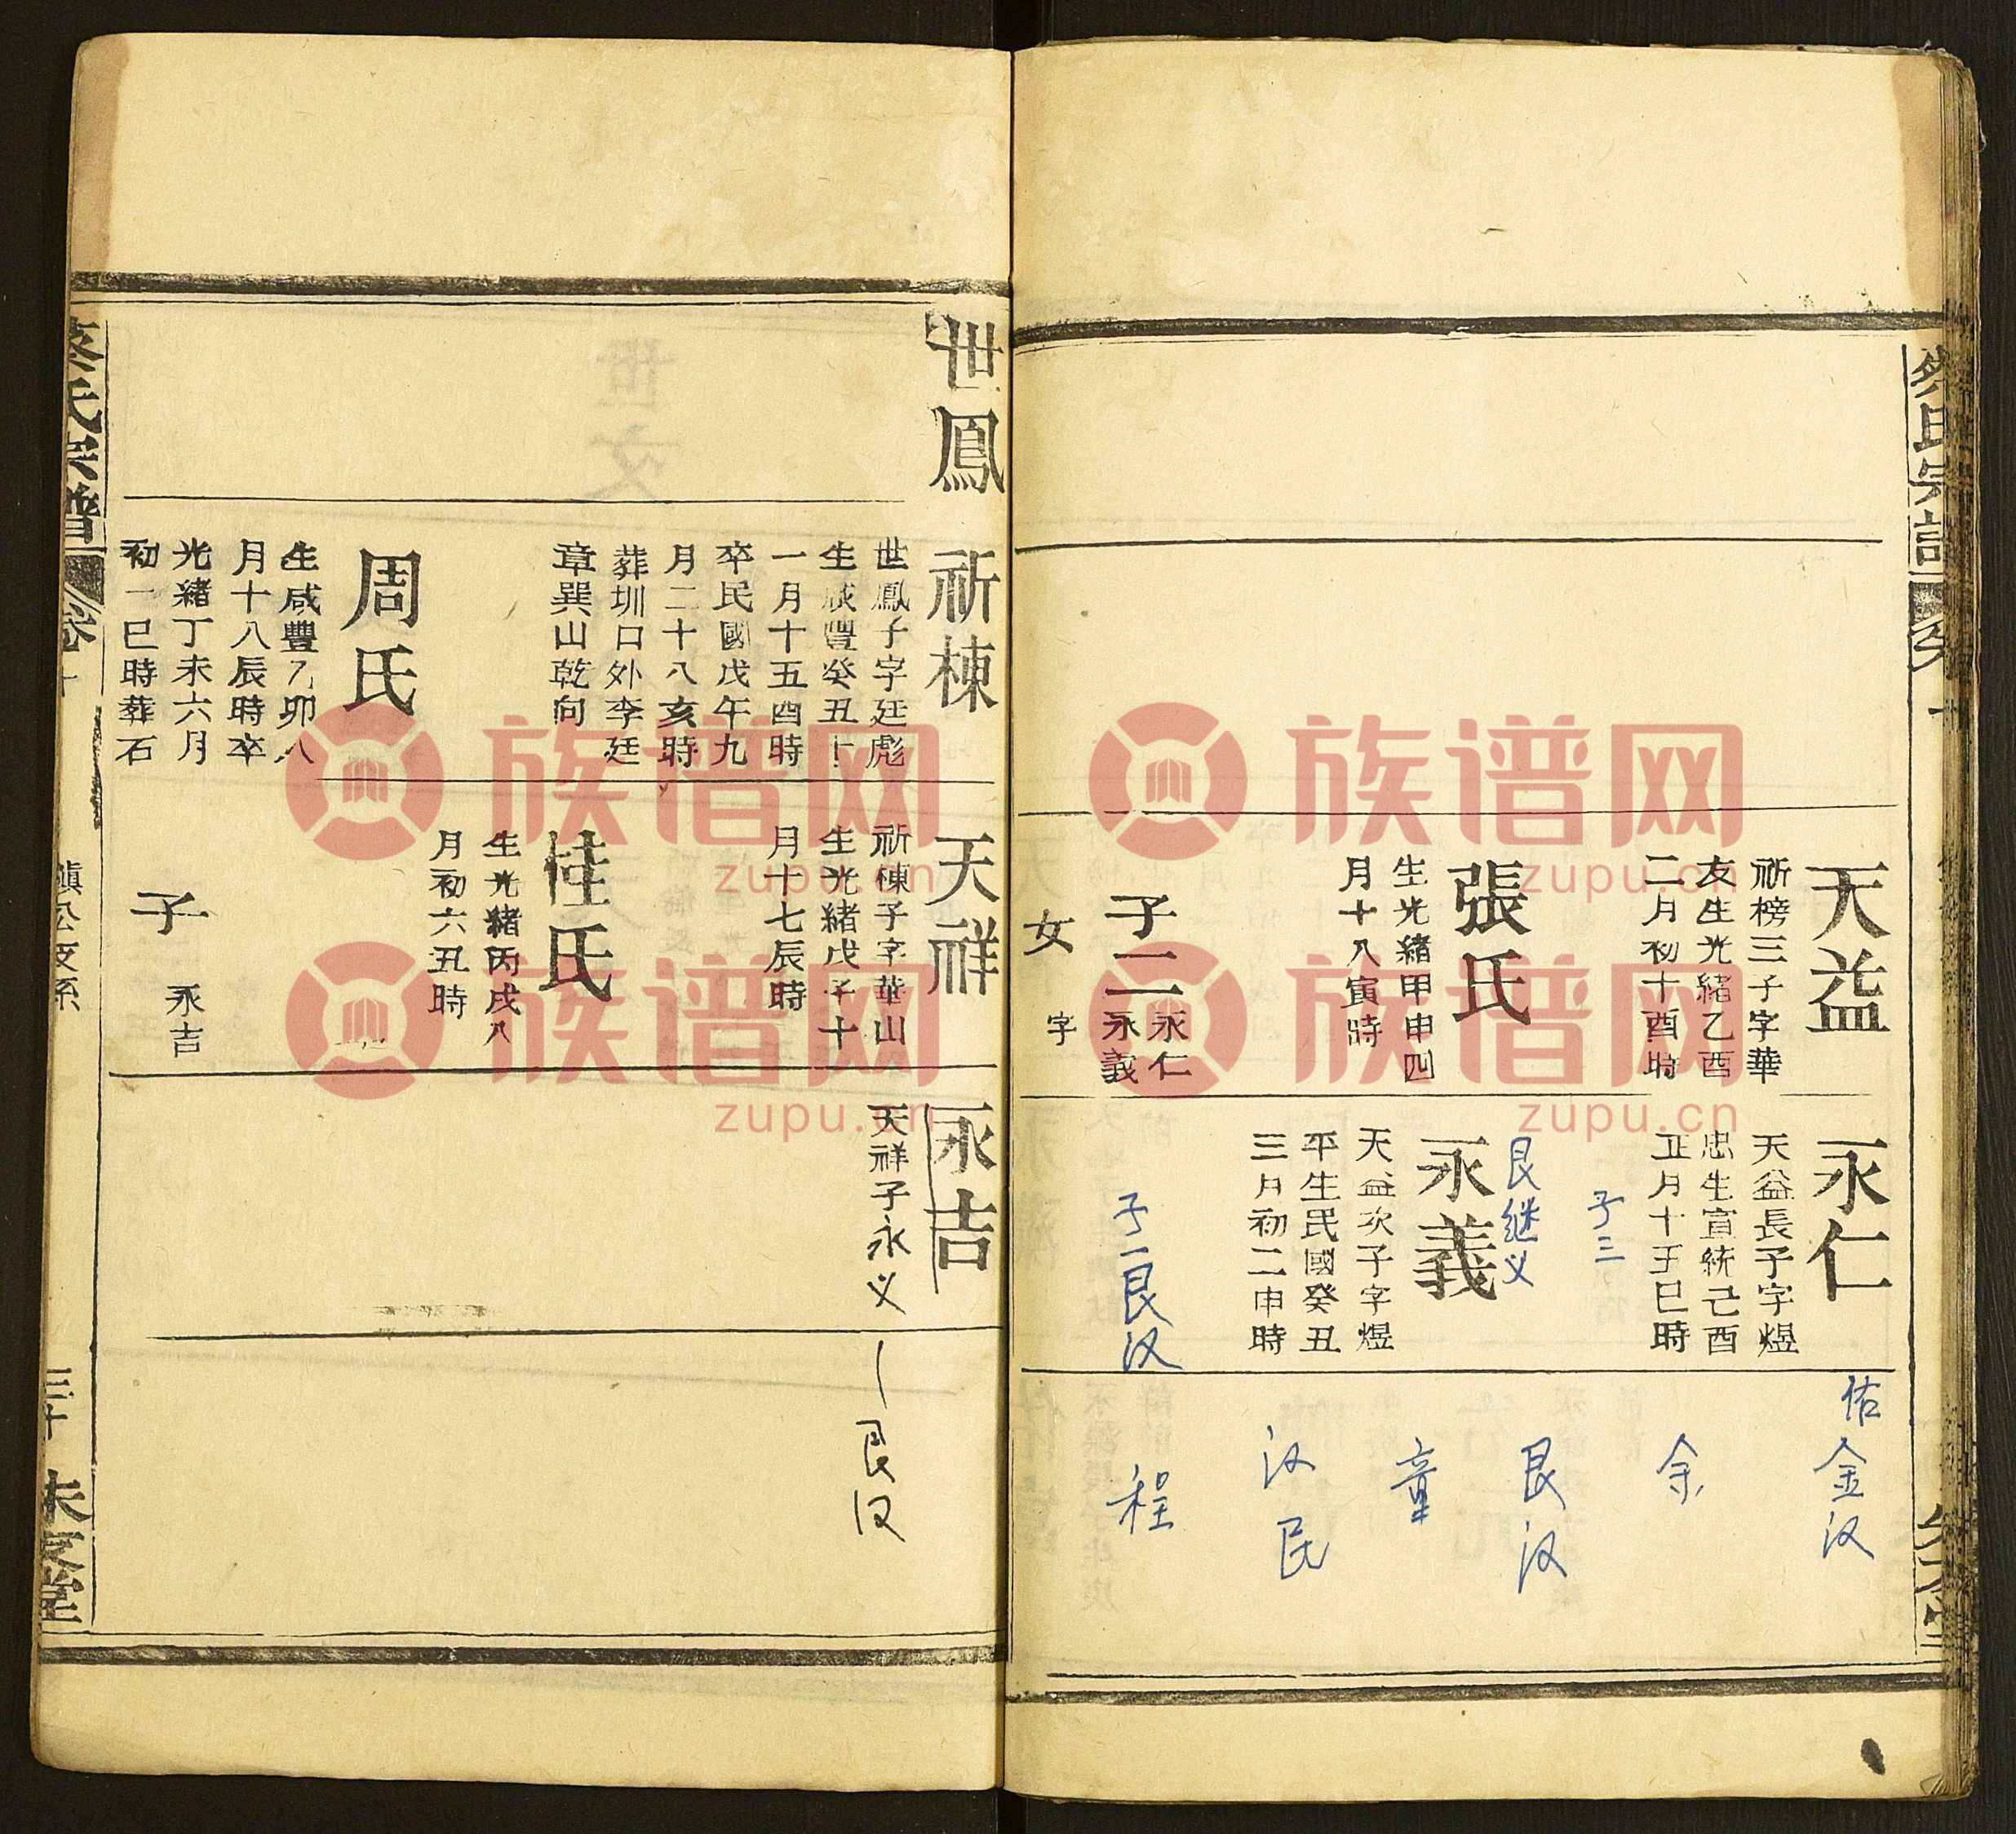 天益
祈榜三子字華
友生光緒乙酉
二月初十酉時
張氏
生光緒甲申四
月十八寅時
子二
永仁
永義
女
字
永仁
天益長子字煜
忠生宣統己酉
正月十五巳時
子三
艮继义
永義
天益次子字煜
平生民國癸丑
三月初二申時
子一艮汉
佑
金汉
余
艮汉
童
汉民
程
世鳳
祈棟
世鳳子字廷彪
生咸豐癸丑十
一月十五酉時
卒民國戊午九
月二十八亥時
葬圳口外李廷
章巽山乾向
周氏
生咸豐乙卯八
月十八辰時卒
光緒丁未六月
初一巳時葬石
天祥
祈棟子字華山
生光緒戊子十
月十七辰時
桂氏
生光緒丙戌八
月初六丑時
子
永吉
永吉
天祥子永义
艮汉
氏宗譜
卷十
公支系
三十
堂
族谱网
zupu.cn
族谱网
zupu.cn
族谱网
zupu.cn
族谱网
zupu.cn